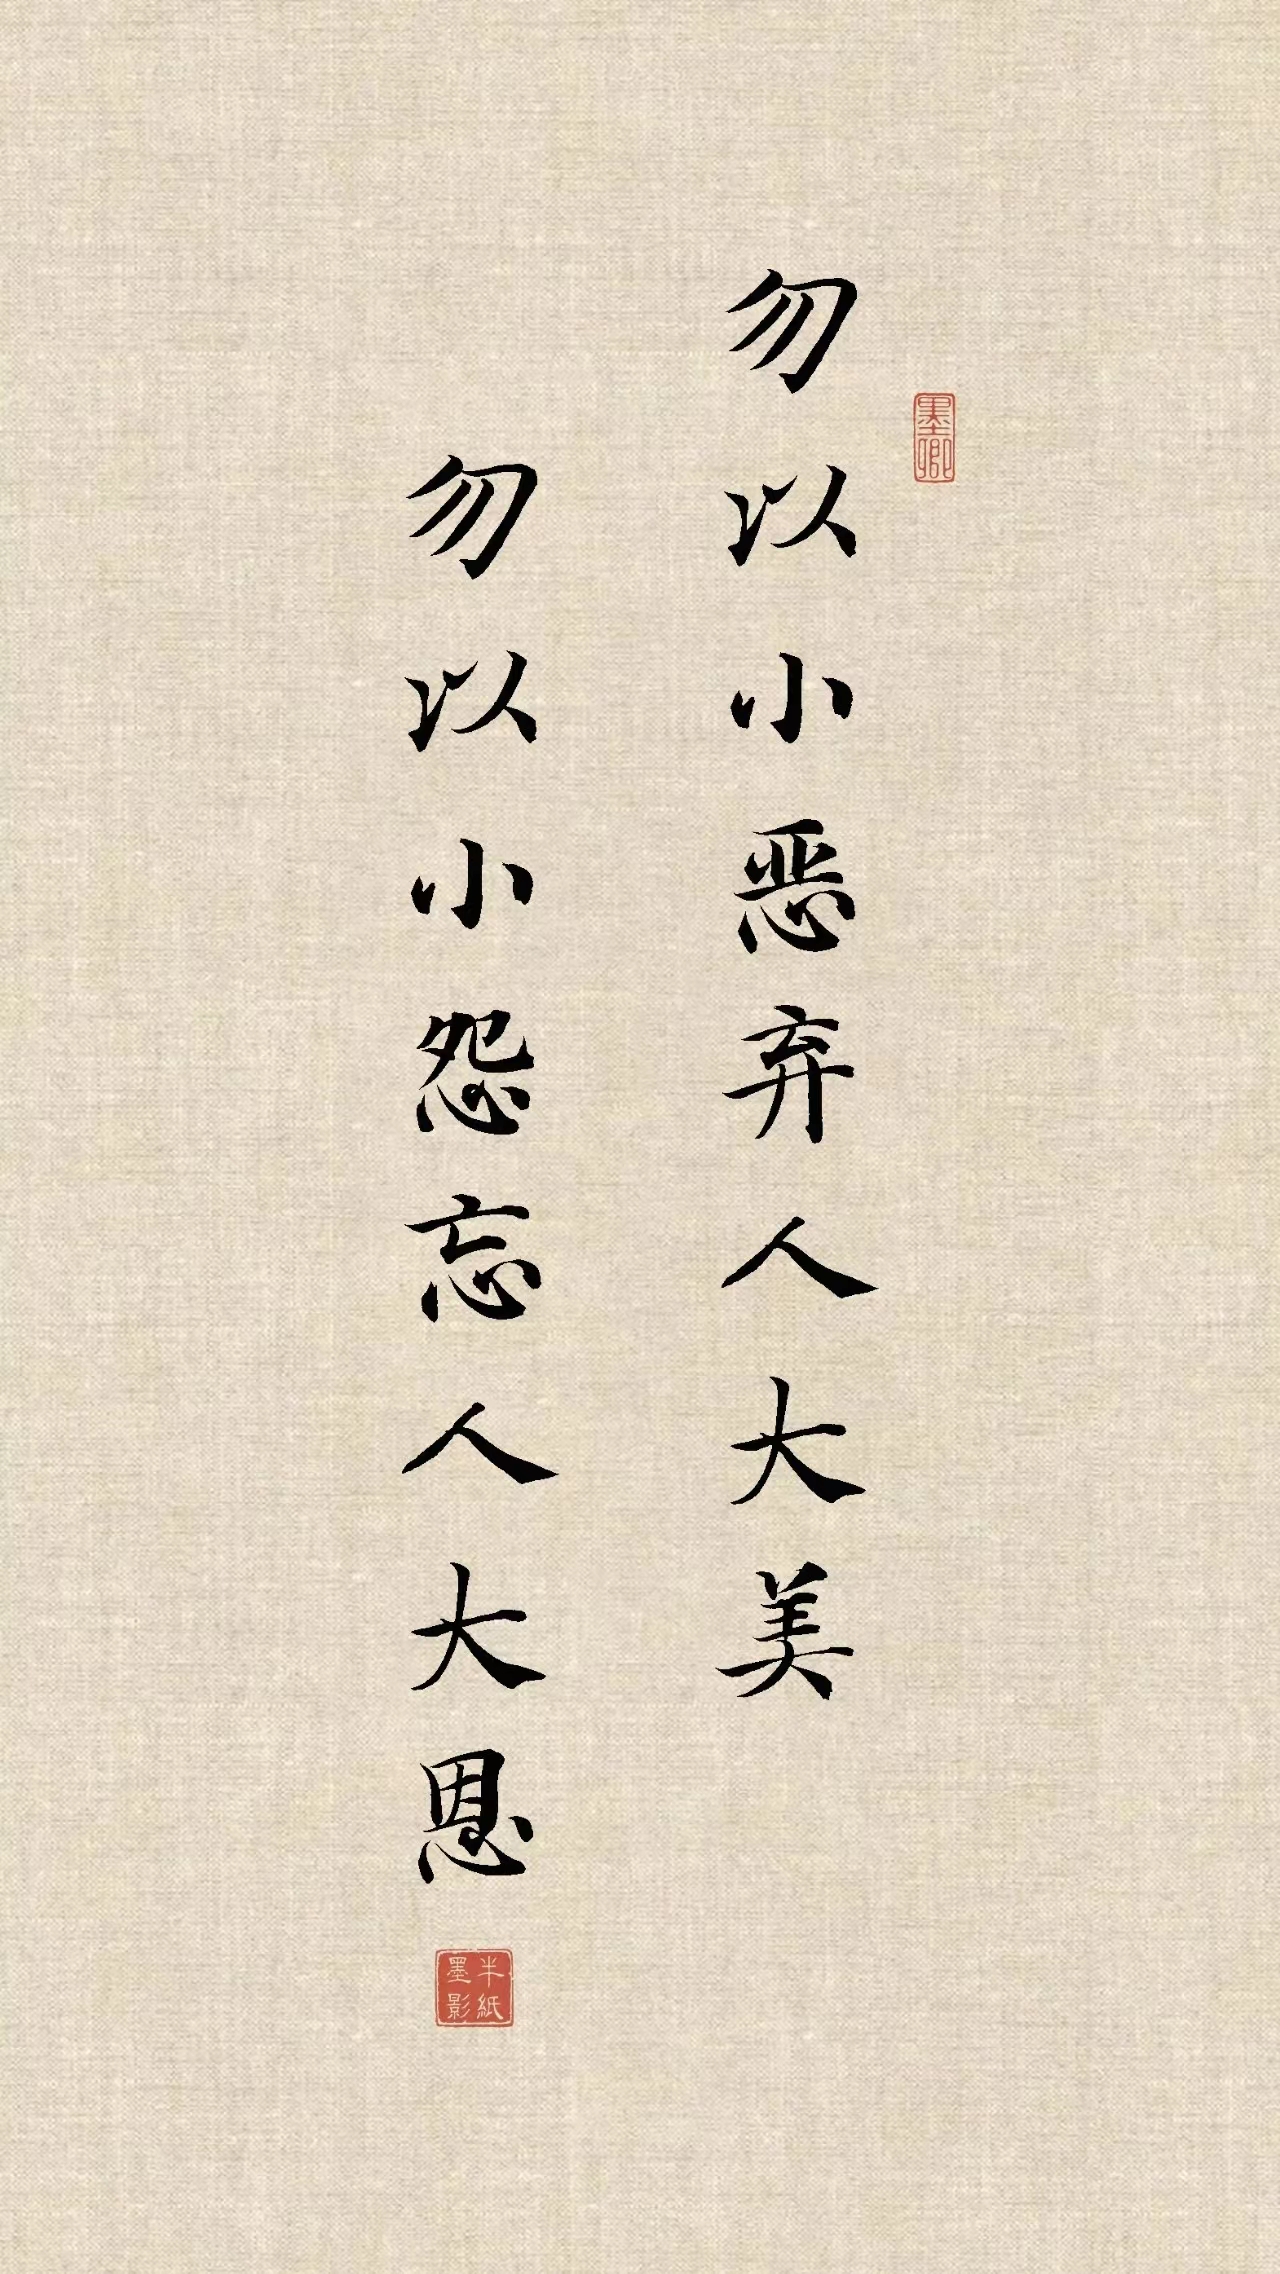 勿以小恶弃人大美
墨卿
勿以小怨忘人大恩
半紙
墨影